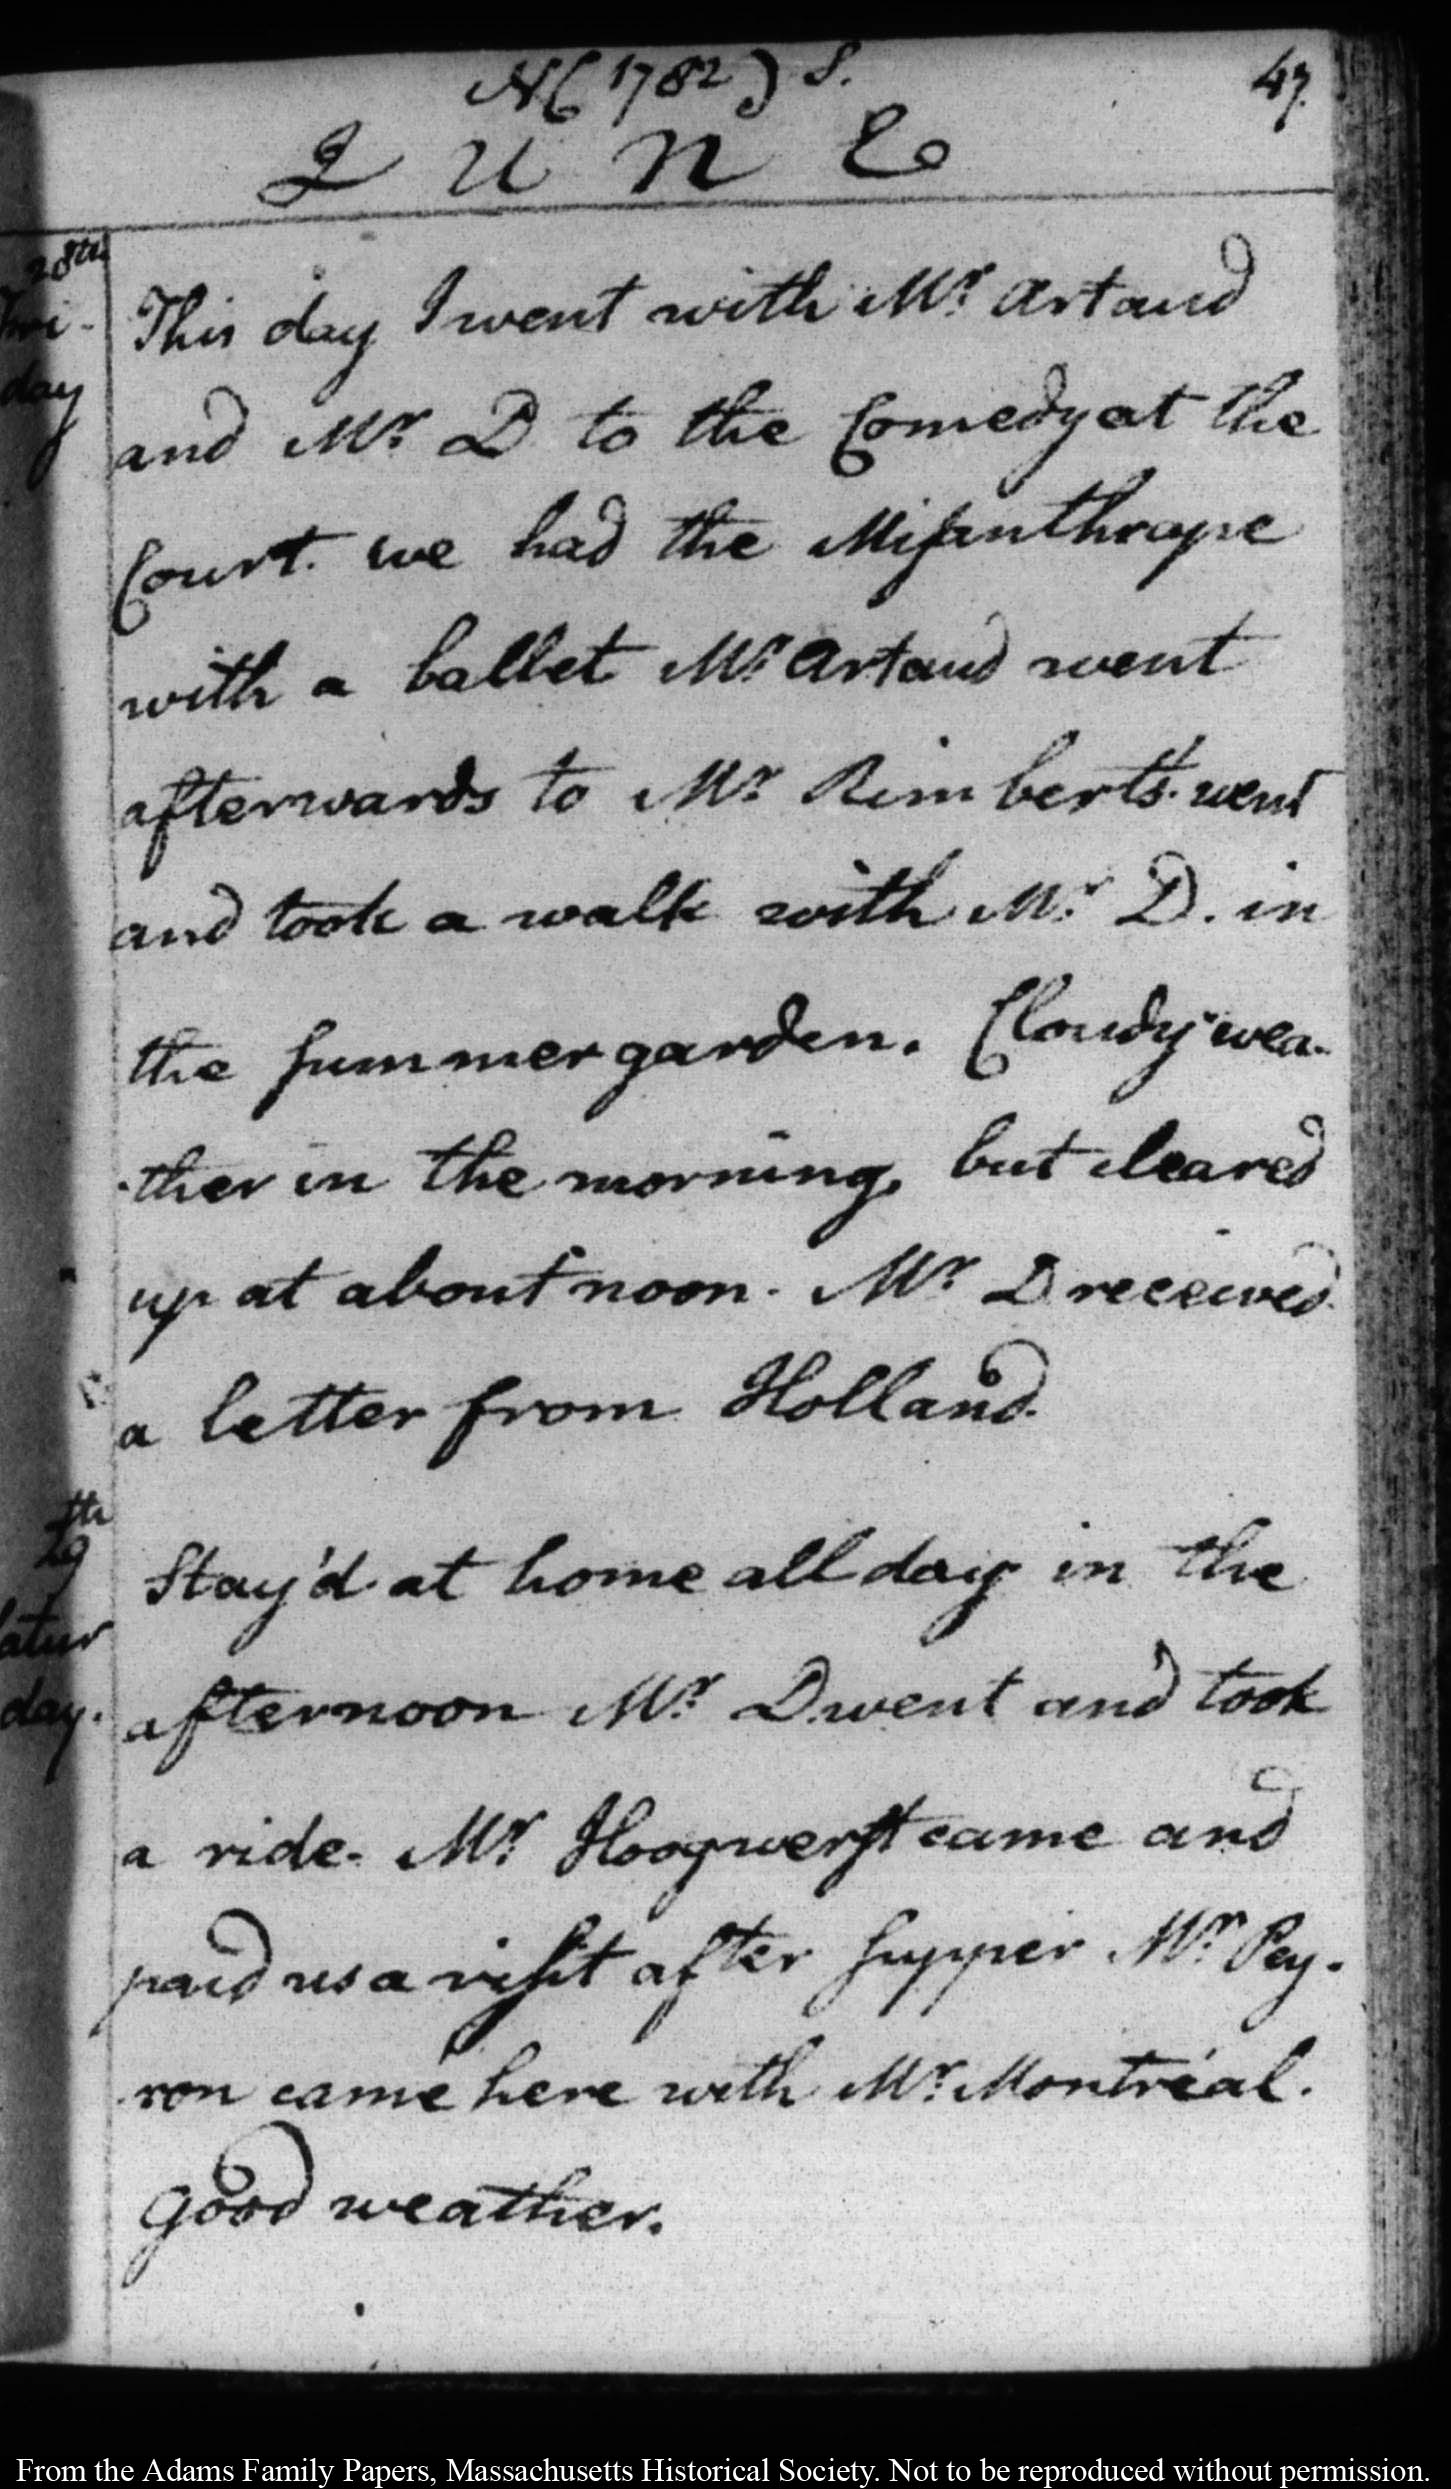 N( 1782 ) S.
47.
J U N E
28th
Fri-
day
This day I went with Mr. Artaud
and Mr. D to the Comedy at the
Court. we had the Misanthrope
with a ballet Mr. Artaud went
afterwards to Mr. Rimbert's. went
and took a walk with Mr. D. in
the summer garden. Cloudy wea-
-ther in the morning, but cleared
up at about noon. Mr. D received
a letter from Holland.
29th
satur
day.
Stay'd at home all day in the
afternoon Mr. D. went and took
a ride. Mr. Hoogwerft came and
paid us a visit after supper Mr. Pey-
ron came here with Mr. Montréal.
Good weather.
From the Adams Family Papers, Massachusetts Historical Society. Not to be reproduced without permission.